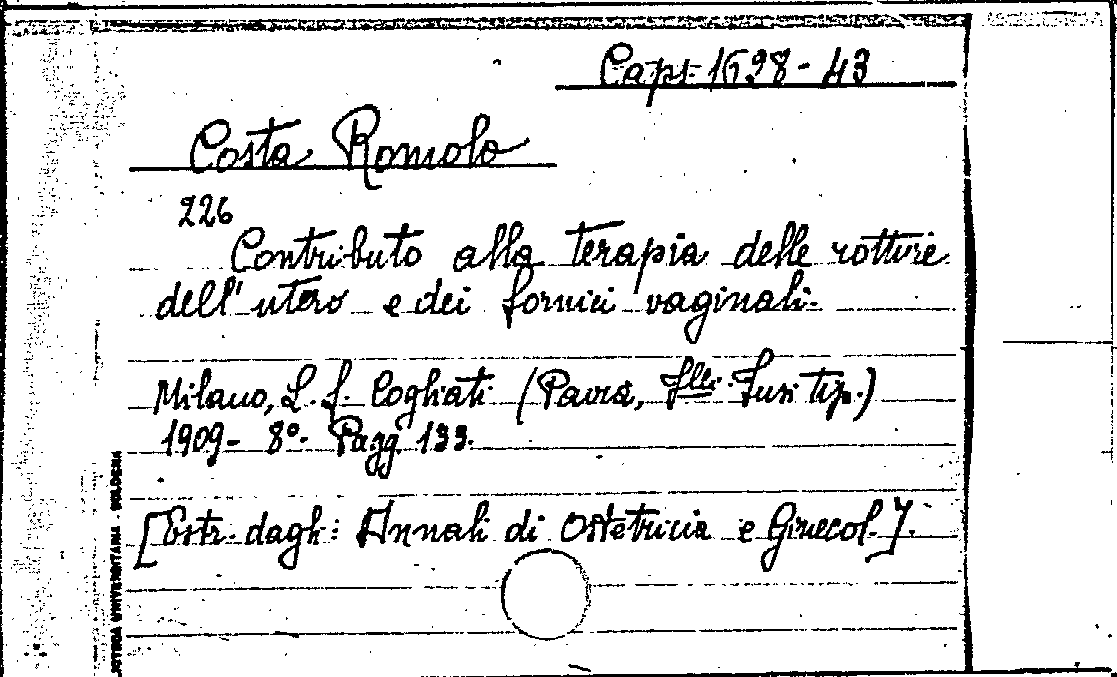 Caps. 1698-43
Costa Romolo
226
Contributo alla terapia delle rotture
dell'utero e dei fornici vaginali.
Milano, L. F. Cogliati (Pavia, F.lli Fusi Tip.)
1909 - 8º. Pagg. 133.
[Estr. dagli: Annali di Ostetricia e Ginecol.].
UNIVERSITARIA - BOLOGNA